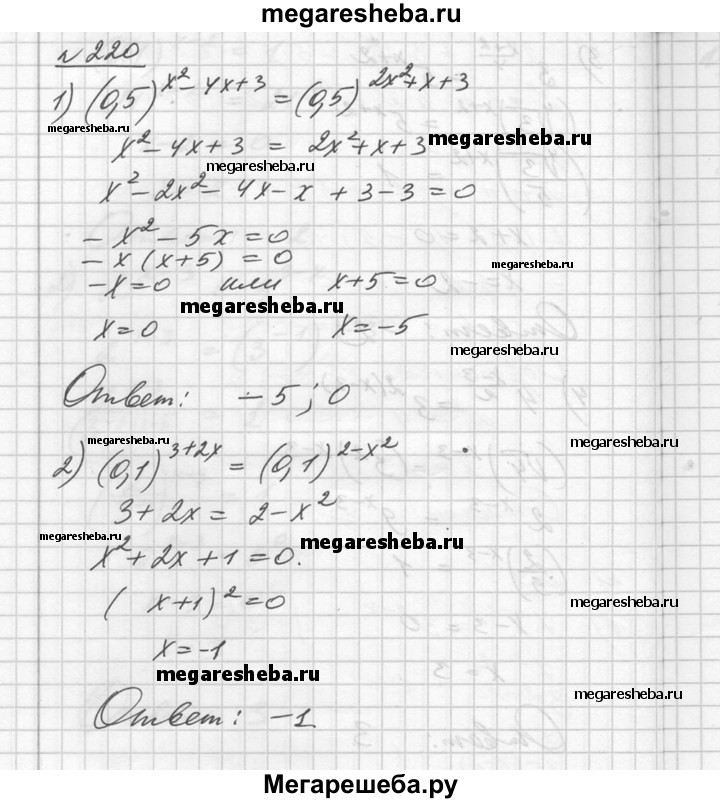 megaresheba.ru
№ 220
1) (0,5)^{x²-4x+3} = (0,5)^{2x²+x+3}
megaresheba.ru
x²-4x+3 = 2x²+x+3 megaresheba.ru
megaresheba.ru
x²-2x²-4x-x+3-3=0
-x²-5x=0
-x(x+5)=0
-x=0 или x+5=0
megaresheba.ru
x=0 x=-5
megaresheba.ru
Ответ: -5; 0
megaresheba.ru
megaresheba.ru
2) (0,1)^{3+2x} = (0,1)^{2-x²}
3+2x = 2-x²
megaresheba.ru
megaresheba.ru
x²+2x+1=0.
(x+1)²=0
megaresheba.ru
x=-1
megaresheba.ru
megaresheba.ru
Ответ: -1
Мегарешеба.ру